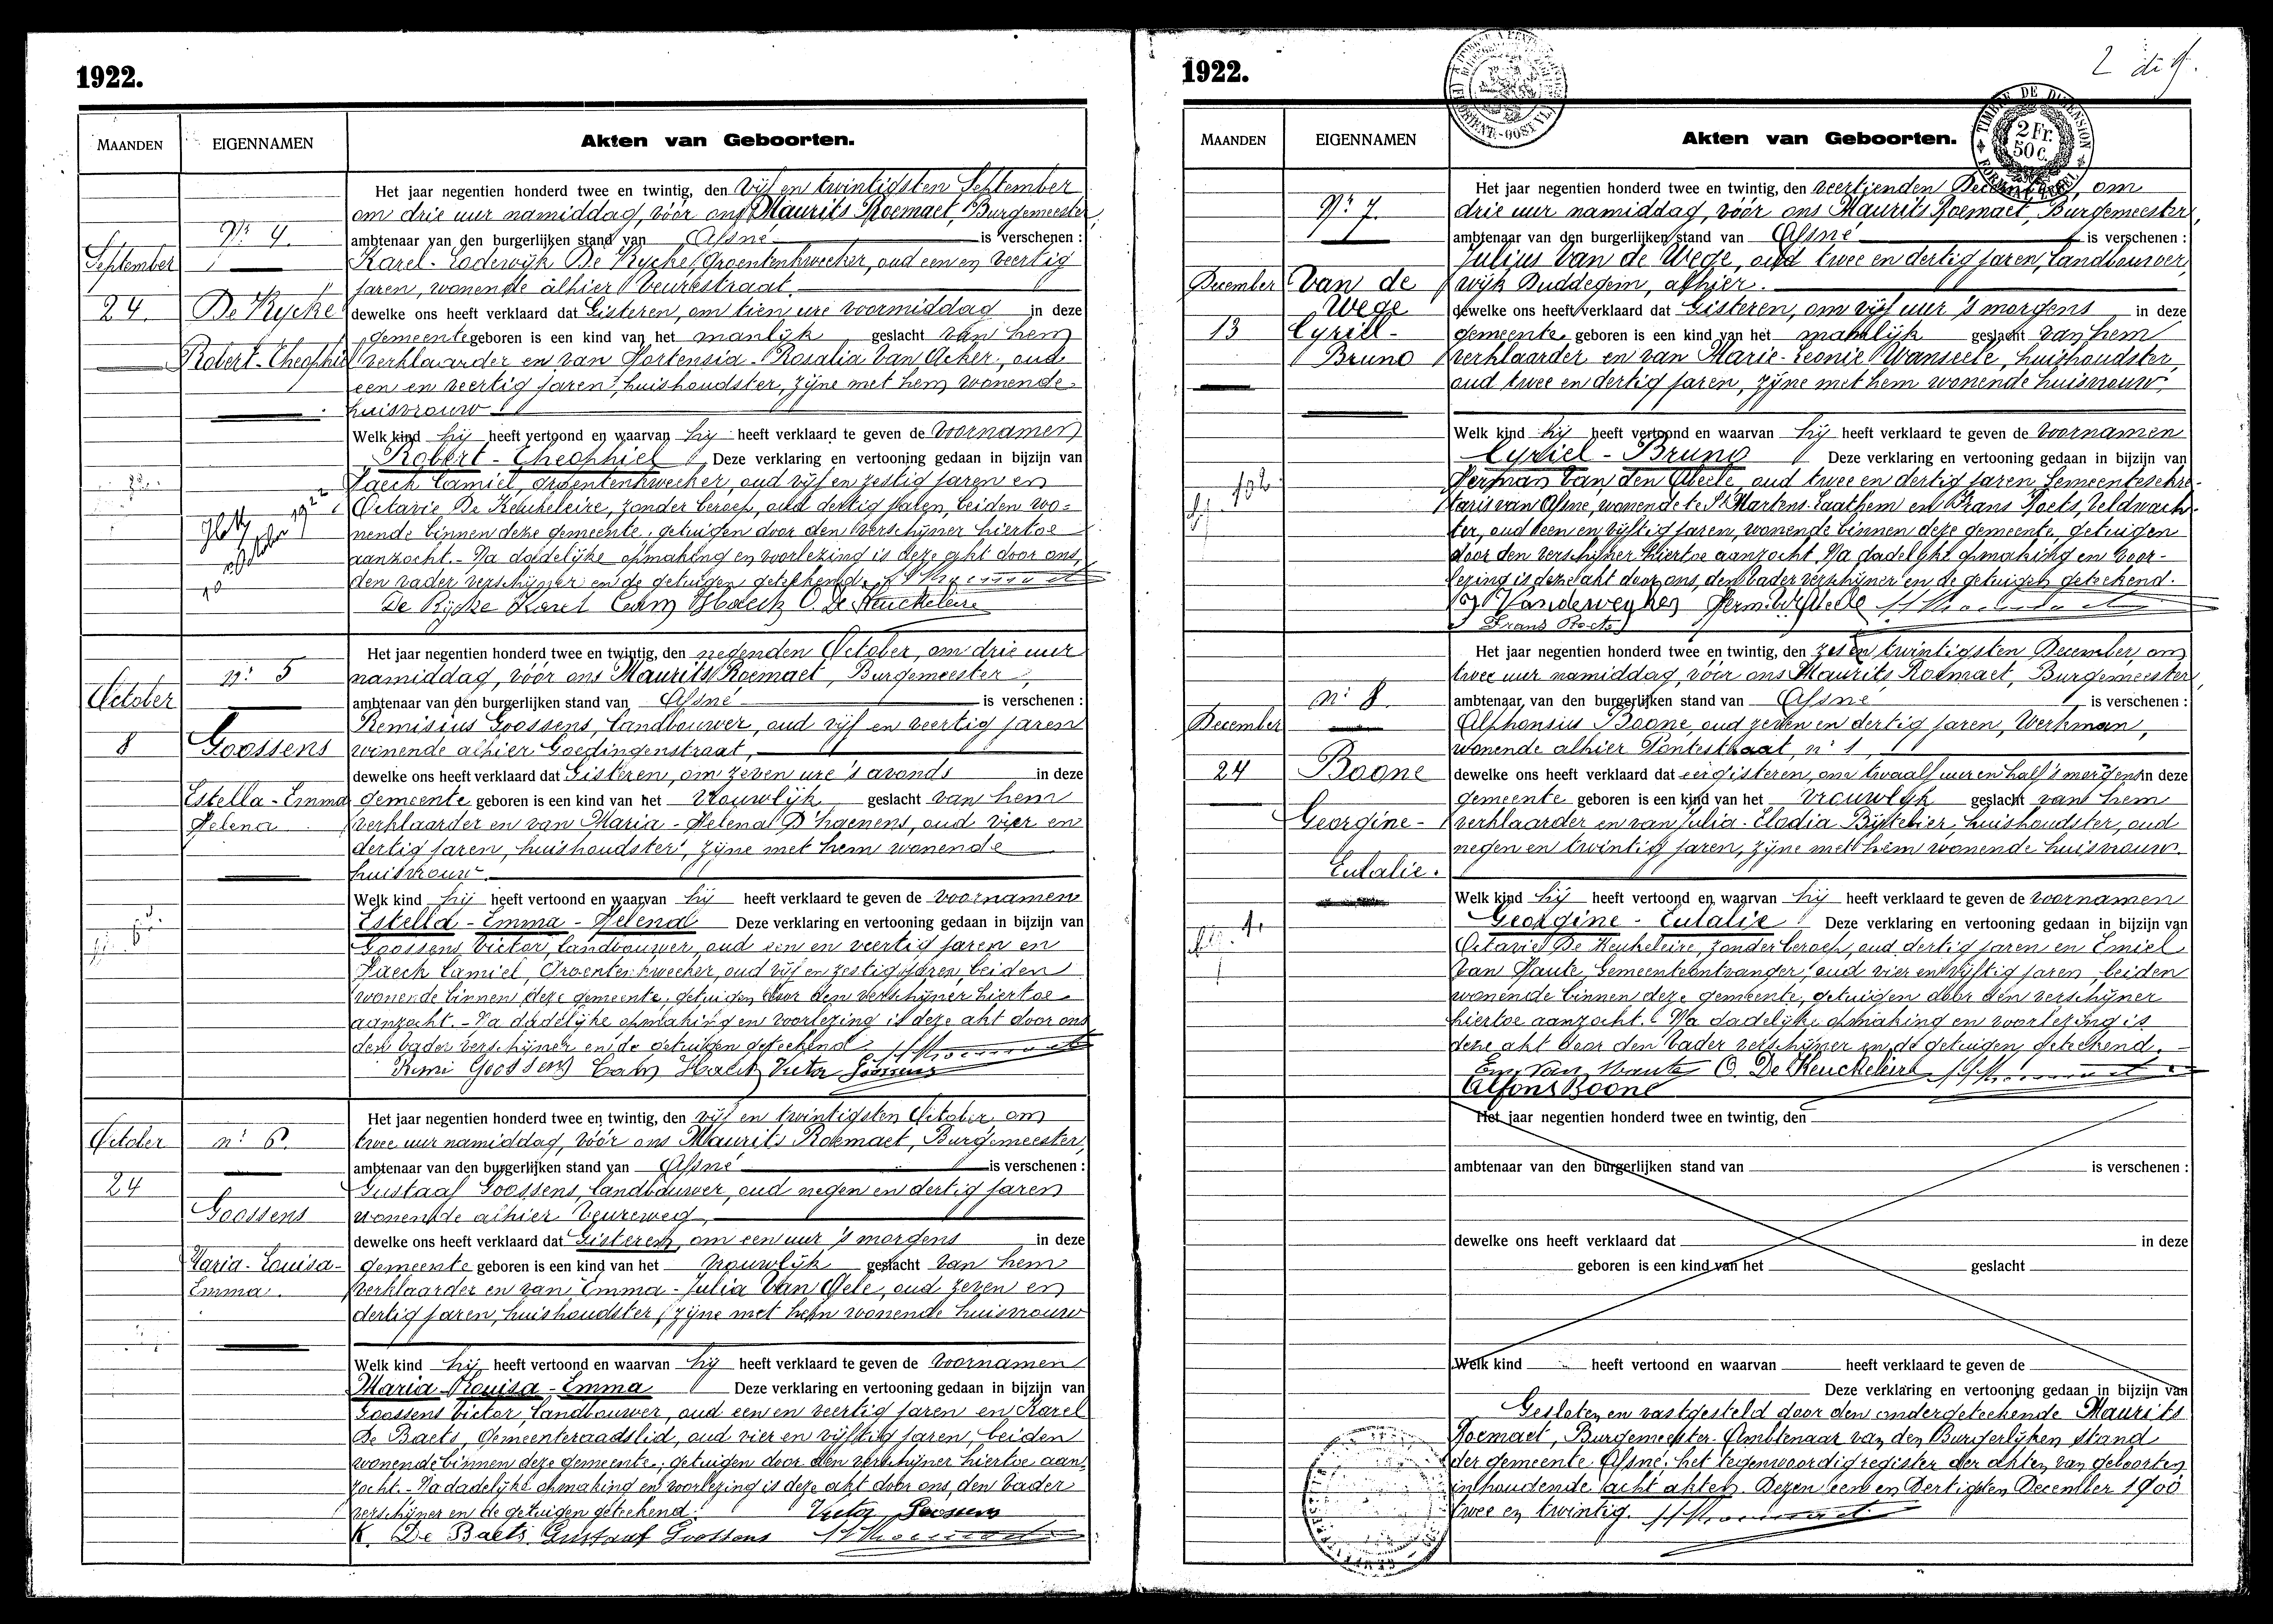 1922.
MAANDEN
EIGENNAMEN
Akten van Geboorten.
Nr 4.
September
24.
De Rycke
Robert-Theophiel
Het jaar negentien honderd twee en twintig, den vijf en twintigsten September
om drie uur namiddag, vóór ons Maurits Roemaet, Burgemeester,
ambtenaar van den burgerlijken stand van Afsné is verschenen :
Karel-Lodewijk De Rycke, Groentenkweeker, oud een en veertig
jaren, wonende alhier Veurestraat.
dewelke ons heeft verklaard dat Gisteren, om tien ure voormiddag in deze
gemeente geboren is een kind van het manlijk geslacht van hem
verklaarder en van Hortensia-Rosalia Van Acker, oud
een en veertig jaren, huishoudster, zijne met hem wonende
huisvrouw
Welk kind hij heeft vertoond en waarvan hij heeft verklaard te geven de voornamen
Robert-Theophiel Deze verklaring en vertooning gedaan in bijzijn van
Haeck Camiel, groentenkweeker, oud vijf en zestig jaren en
Octavie De Keukeleire, zonder beroep, oud dertig jaren, beiden wo=
nende binnen deze gemeente, getuigen door den verschijner hiertoe
aanzocht. - Na dadelijke opmaking en voorlezing is deze akt door ons,
den vader verschijner en de getuigen geteekend.
De Rycke Karel Cam Haeck O. De Keuckeleire
10 October 1922
n: 5
October
8
Goossens
Estella-Emma
Helena
Het jaar negentien honderd twee en twintig, den negenden October, om drie uur
namiddag, vóór ons Maurits Roemaet, Burgemeester,
ambtenaar van den burgerlijken stand van Afsné is verschenen :
Remisius Goossens, Landbouwer, oud vijf en veertig jaren
wonende alhier Goedingenstraat,
dewelke ons heeft verklaard dat Gisteren, om zeven ure 's avonds in deze
gemeente geboren is een kind van het vrouwlijk geslacht van hem
verklaarder en van Maria-Helena D'haenens, oud vier en
dertig jaren, huishoudster, zijne met hem wonende
huisvrouw.
Welk kind hij heeft vertoond en waarvan hij heeft verklaard te geven de voornamen
Estella-Emma-Helena Deze verklaring en vertooning gedaan in bijzijn van
Goossens Victor, landbouwer, oud een en veertig jaren en
Haeck Camiel, Groentenkweeker, oud vijf en zestig jaren, beiden
wonende binnen deze gemeente, getuigen door den verschijner hiertoe
aanzocht. - Na dadelijke opmaking en voorlezing is deze akt door ons
den vader verschijner en de getuigen geteekend
Remi Goossens Cam Haeck Victor Goossens
n: 6.
October
24
Goossens
Maria-Louisa-
Emma.
Het jaar negentien honderd twee en twintig, den vijf en twintigsten October, om
twee uur namiddag, vóór ons Maurits Roemaet, Burgemeester,
ambtenaar van den burgerlijken stand van Afsné is verschenen :
Gustaaf Goossens, landbouwer, oud negen en dertig jaren
wonende alhier Veureweg,
dewelke ons heeft verklaard dat Gisteren, om een uur 's morgens in deze
gemeente geboren is een kind van het vrouwlijk geslacht van hem
verklaarder en van Emma-Julia Van Hele, oud zeven en
dertig jaren, huishoudster, zijne met hem wonende huisvrouw
Welk kind hij heeft vertoond en waarvan hij heeft verklaard te geven de voornamen
Maria Louisa-Emma Deze verklaring en vertooning gedaan in bijzijn van
Goossens Victor, landbouwer, oud een en veertig jaren en Karel
De Baets, Gemeenteraadslid, oud vier en vijftig jaren, beiden
wonende binnen deze gemeente, getuigen door den verschijner hiertoe aan-
zocht. - Na dadelijke opmaking en voorlezing is deze akt door ons, den vader
verschijner en de getuigen geteekend. Victor Goossens
K. De Baets Gustaaf Goossens
1922.
MAANDEN
EIGENNAMEN
Akten van Geboorten.
TIMBRE DE DIMENSION
2 Fr.
50 c.
Nr 7.
December
13
Van de
Wege
Cyriel-
Bruno
Het jaar negentien honderd twee en twintig, den veertienden December, om
drie uur namiddag, vóór ons Maurits Roemaet, Burgemeester,
ambtenaar van den burgerlijken stand van Afsné is verschenen :
Julius Van de Wege, oud twee en dertig jaren, landbouwer,
wijk Duddegem, alhier.
dewelke ons heeft verklaard dat Gisteren, om vijf uur 's morgens in deze
gemeente geboren is een kind van het manlijk geslacht van hem
verklaarder en van Marie-Leonie Wanseele, huishoudster,
oud twee en dertig jaren, zijne met hem wonende huisvrouw.
Welk kind hij heeft vertoond en waarvan hij heeft verklaard te geven de voornamen
Cyriel-Bruno Deze verklaring en vertooning gedaan in bijzijn van
Herman Van den Abeele, oud twee en dertig jaren Gemeentesekre-
taris van Afsné, wonende te St Martens-Laathem en Frans Roets, veldwach-
ter, oud een en vijftig jaren, wonende binnen deze gemeente, getuigen
door den verschijner hiertoe aanzocht. Na dadelijke opmaking en voor-
lezing is deze akt door ons, den vader verschijner en de getuigen geteekend.
J Vandeweghe
Frans Roets
n: 8.
December
24
Boone
Georgine-
Eulalie.
Het jaar negentien honderd twee en twintig, den zes en twintigsten December, om
twee uur namiddag, vóór ons Maurits Roemaet, Burgemeester,
ambtenaar van den burgerlijken stand van Afsné is verschenen :
Alphonsius Boone, oud zeven en dertig jaren, Werkman,
wonende alhier Pontestraat, n: 1,
dewelke ons heeft verklaard dat eergisteren, om twaalf uur en half 's morgens in deze
gemeente geboren is een kind van het vrouwlijk geslacht van hem
verklaarder en van Julia-Elodia Bijttebier, huishoudster, oud
negen en twintig jaren, zijne met hem wonende huisvrouw.
Welk kind hij heeft vertoond en waarvan hij heeft verklaard te geven de voornamen
Georgine-Eulalie Deze verklaring en vertooning gedaan in bijzijn van
Octavie De Keukeleire, zonder beroep, oud dertig jaren en Emiel
Van Haute, Gemeenteontvanger, oud vier en vijftig jaren, beiden
wonende binnen deze gemeente, getuigen door den verschijner
hiertoe aanzocht. Na dadelijke opmaking en voorlezing is
deze akt door den vader verschijner en de getuigen geteekend.
Em. Van Haute O. De Keuckeleire
Alfons Boone
Het jaar negentien honderd twee en twintig, den
ambtenaar van den burgerlijken stand van is verschenen :
dewelke ons heeft verklaard dat in deze
geboren is een kind van het geslacht
Welk kind heeft vertoond en waarvan heeft verklaard te geven de
Deze verklaring en vertooning gedaan in bijzijn van
Gesloten en vastgesteld door den ondergeteekende Maurits
Roemaet, Burgemeester-Ambtenaar van den Burgerlijken stand
der gemeente Afsné het tegenwoordig register der akten van geboorten
inhoudende acht akten. Dezen een en Dertigsten December 1900
twee en twintig.